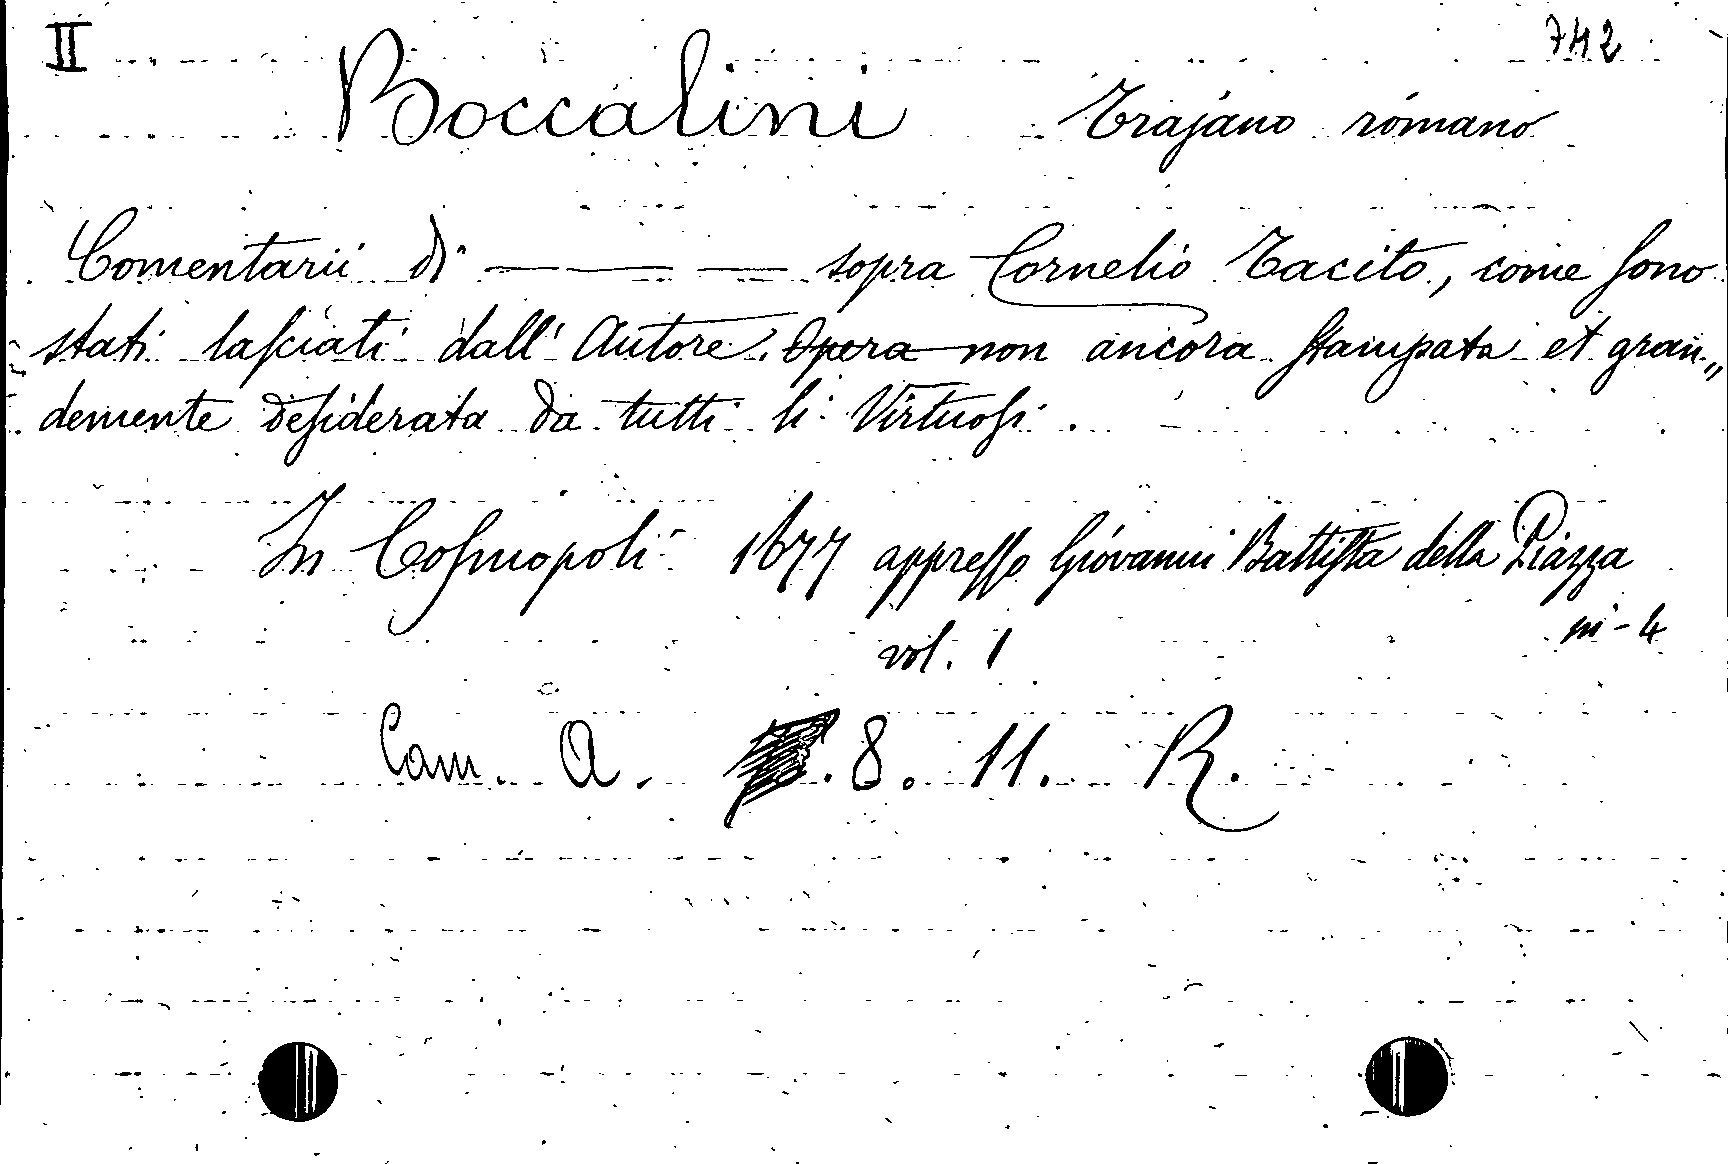 II 742
Boccalini Trajano romano
Comentarii di ——— — sopra Cornelio Tacito, come sono
stati lasciati dall' Autore. Opera non ancora stampata et gran„
demente desiderata da tutti li Virtuosi.
In Cosmopoli 1677 appresso Giovanni Battista della Piazza
in-4
vol. 1
Cam. A. 8. 11. R.